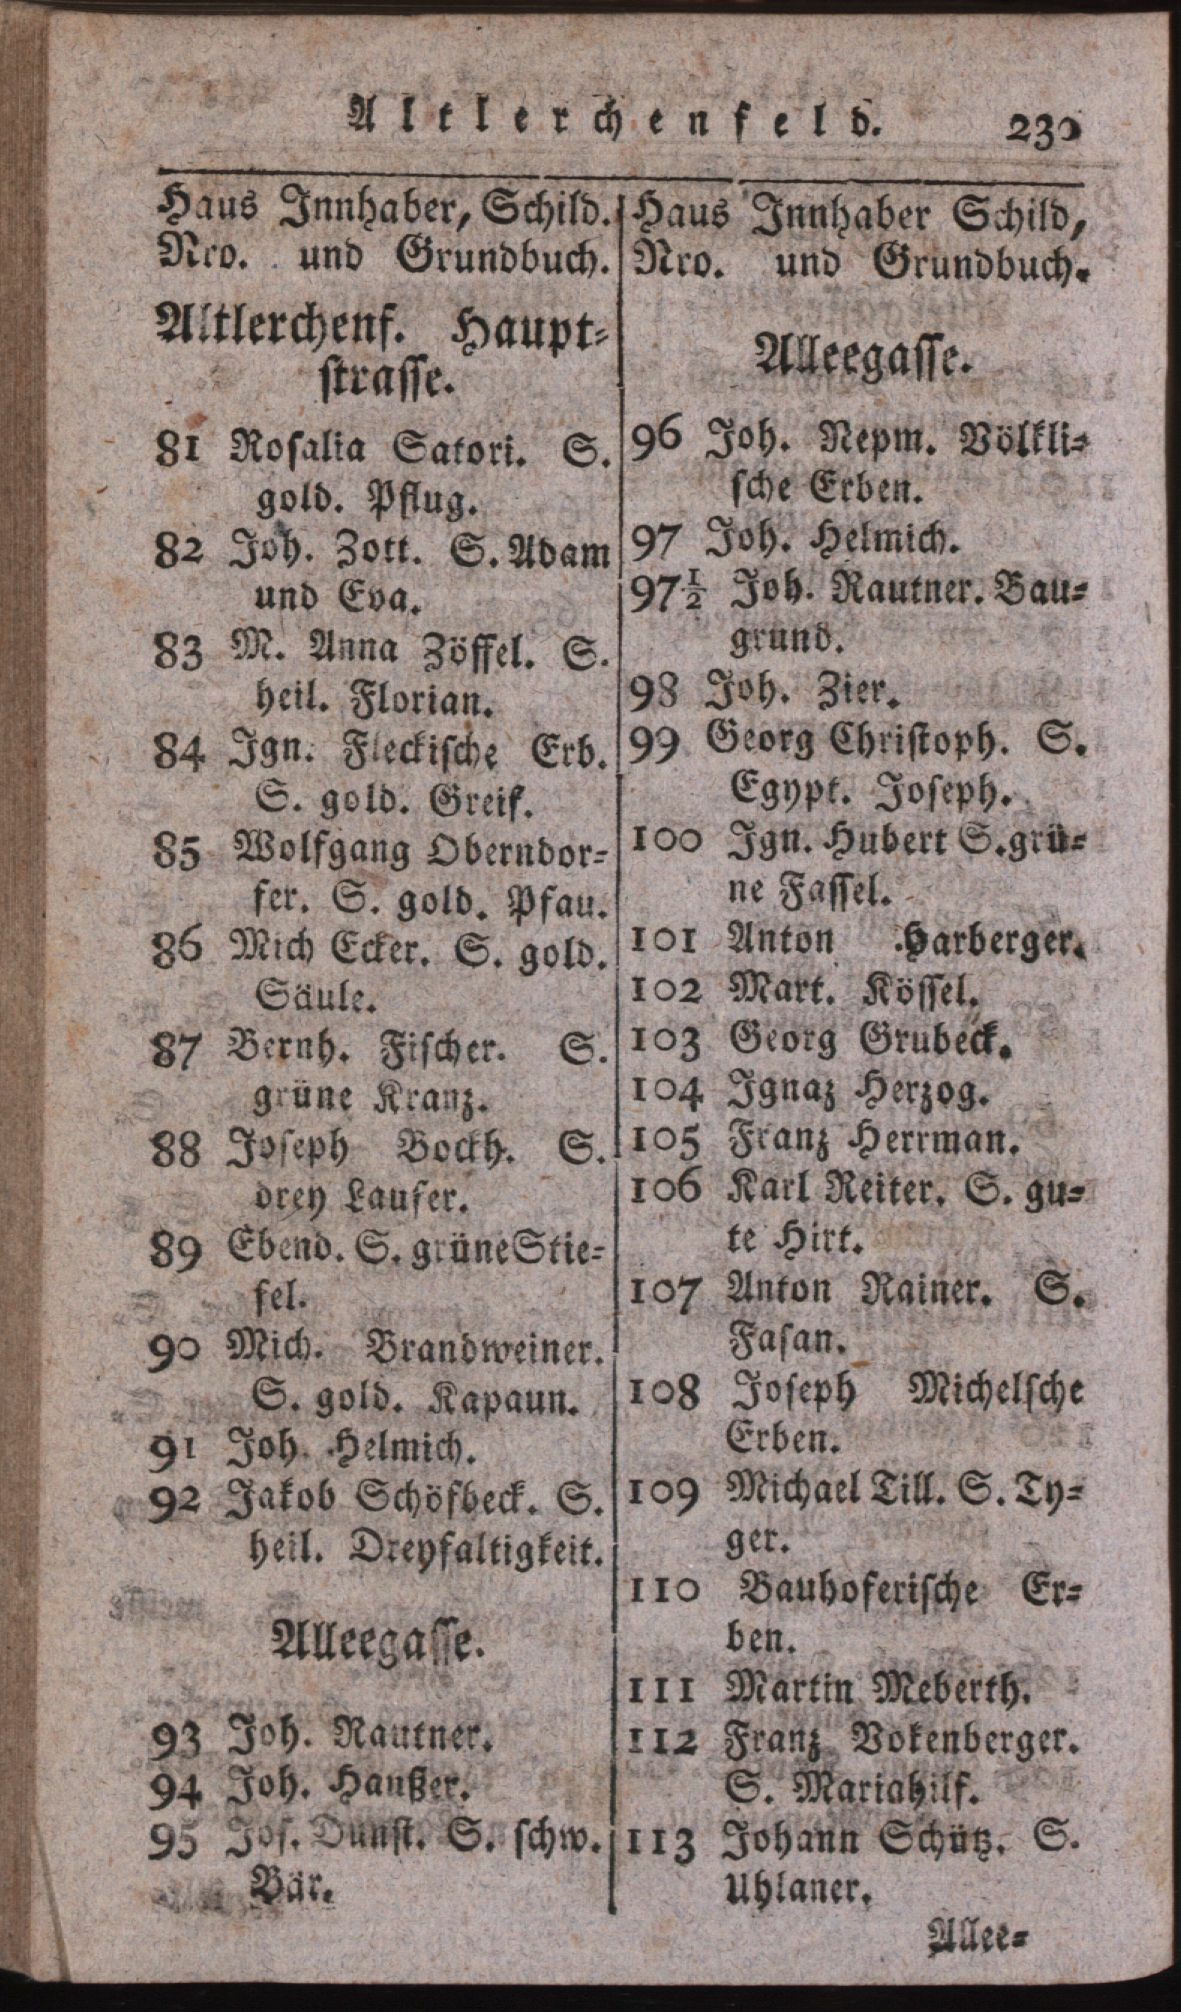 Altlerchenfeld. 230
Haus Innhaber, Schild.
Nro. und Grundbuch.
Altlerchenf. Haupt-
strasse.
81 Rosalia Satori. S.
gold. Pflug.
82 Joh. Zott. S. Adam
und Eva.
83 M. Anna Zöffel. S.
heil. Florian.
84 Ign. Fleckische Erb.
S. gold. Greif.
85 Wolfgang Oberndor-
fer. S. gold. Pfau.
86 Mich Ecker. S. gold.
Säule.
87 Bernh. Fischer. S.
grüne Kranz.
88 Joseph Bockh. S.
drey Laufer.
89 Ebend. S. grüne Stie-
fel.
90 Mich. Brandweiner.
S. gold. Kapaun.
91 Joh. Helmich.
92 Jakob Schöfbeck. S.
heil. Dreyfaltigkeit.
Alleegasse.
93 Joh. Rautner.
94 Joh. Haußer.
95 Jos. Dunst. S. schw.
Bär.
Haus Innhaber Schild,
Nro. und Grundbuch.
Alleegasse.
96 Joh. Nepm. Völkli-
sche Erben.
97 Joh. Helmich.
97½ Joh. Rautner. Bau-
grund.
98 Joh. Zier.
99 Georg Christoph. S.
Egypt. Joseph.
100 Ign. Hubert S. grü-
ne Fassel.
101 Anton Harberger.
102 Mart. Kössel.
103 Georg Grubeck.
104 Ignaz Herzog.
105 Franz Herrman.
106 Karl Reiter. S. gu-
te Hirt.
107 Anton Rainer. S.
Fasan.
108 Joseph Michelsche
Erben.
109 Michael Till. S. Ty-
ger.
110 Bauhoferische Er-
ben.
111 Martin Meberth.
112 Franz Vokenberger.
S. Mariahilf.
113 Johann Schütz. S.
Uhlaner.
Allee-